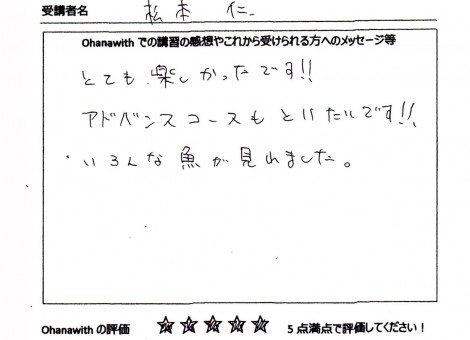 受講者名 松本 仁
Ohanawith での講習の感想やこれから受けられる方へのメッセージ等
とても楽しかったです!!
アドバンスコースもといたいです!!
・いろんな魚が見れました。
Ohanawith の評価 ☆☆☆☆☆ 5点満点で評価してください!